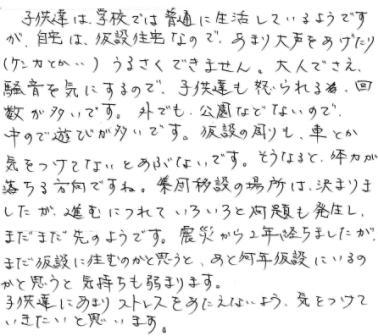 子供達は、学校では普通に生活しているようです
が、自宅は、仮設住宅なので、あまり大声をあげたり
(ケンカとか...)うるさくできません。大人でさえ、
騒音を気にするので、子供達も怒られる回
数が多いです。外でも、公園などないので、
中ので遊びが多いです。仮設の周りも、車とか
気をつけてないとあぶないです。そうなると、体力が
落ちる方向ですね。集団移設の場所は、決まりま
したが、進むにつれていろいろと問題も発生し、
まだまだ先のようです。震災から2年経ちましたが、
まだ仮設に住むのかと思うと、あと何年仮設にいるの
かと思うと気持ちも弱まります。
子供達にあまりストレスをあたえないよう、気をつけて
いきたいと思います。